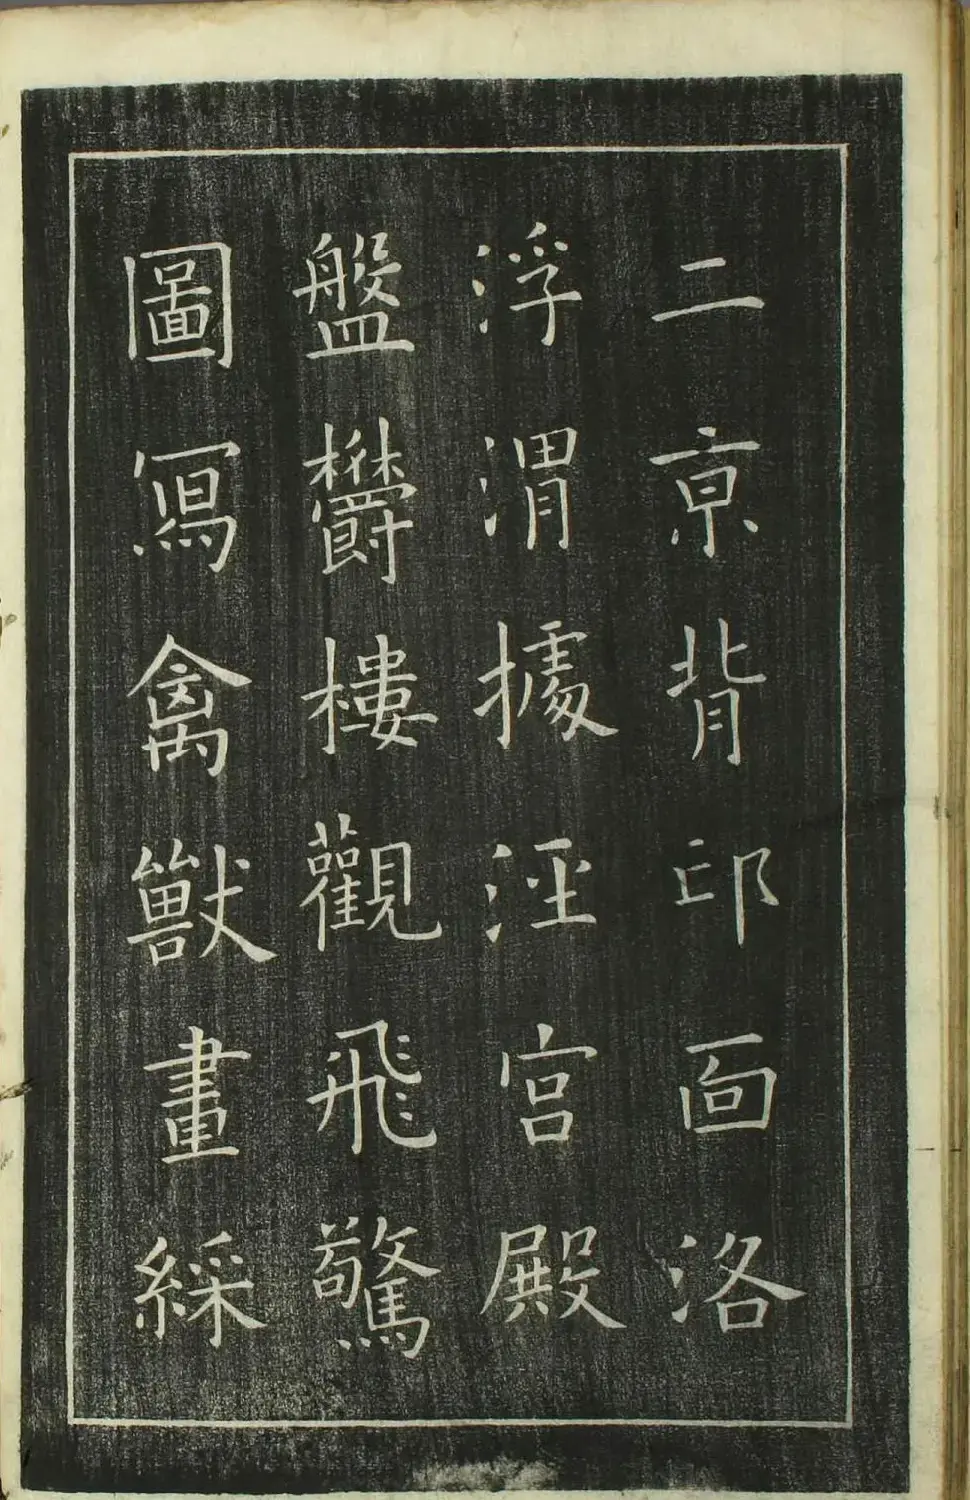 二京背邙面洛
浮渭據涇宮殿
盤欝樓觀飛驚
圖寫禽獸畫綵